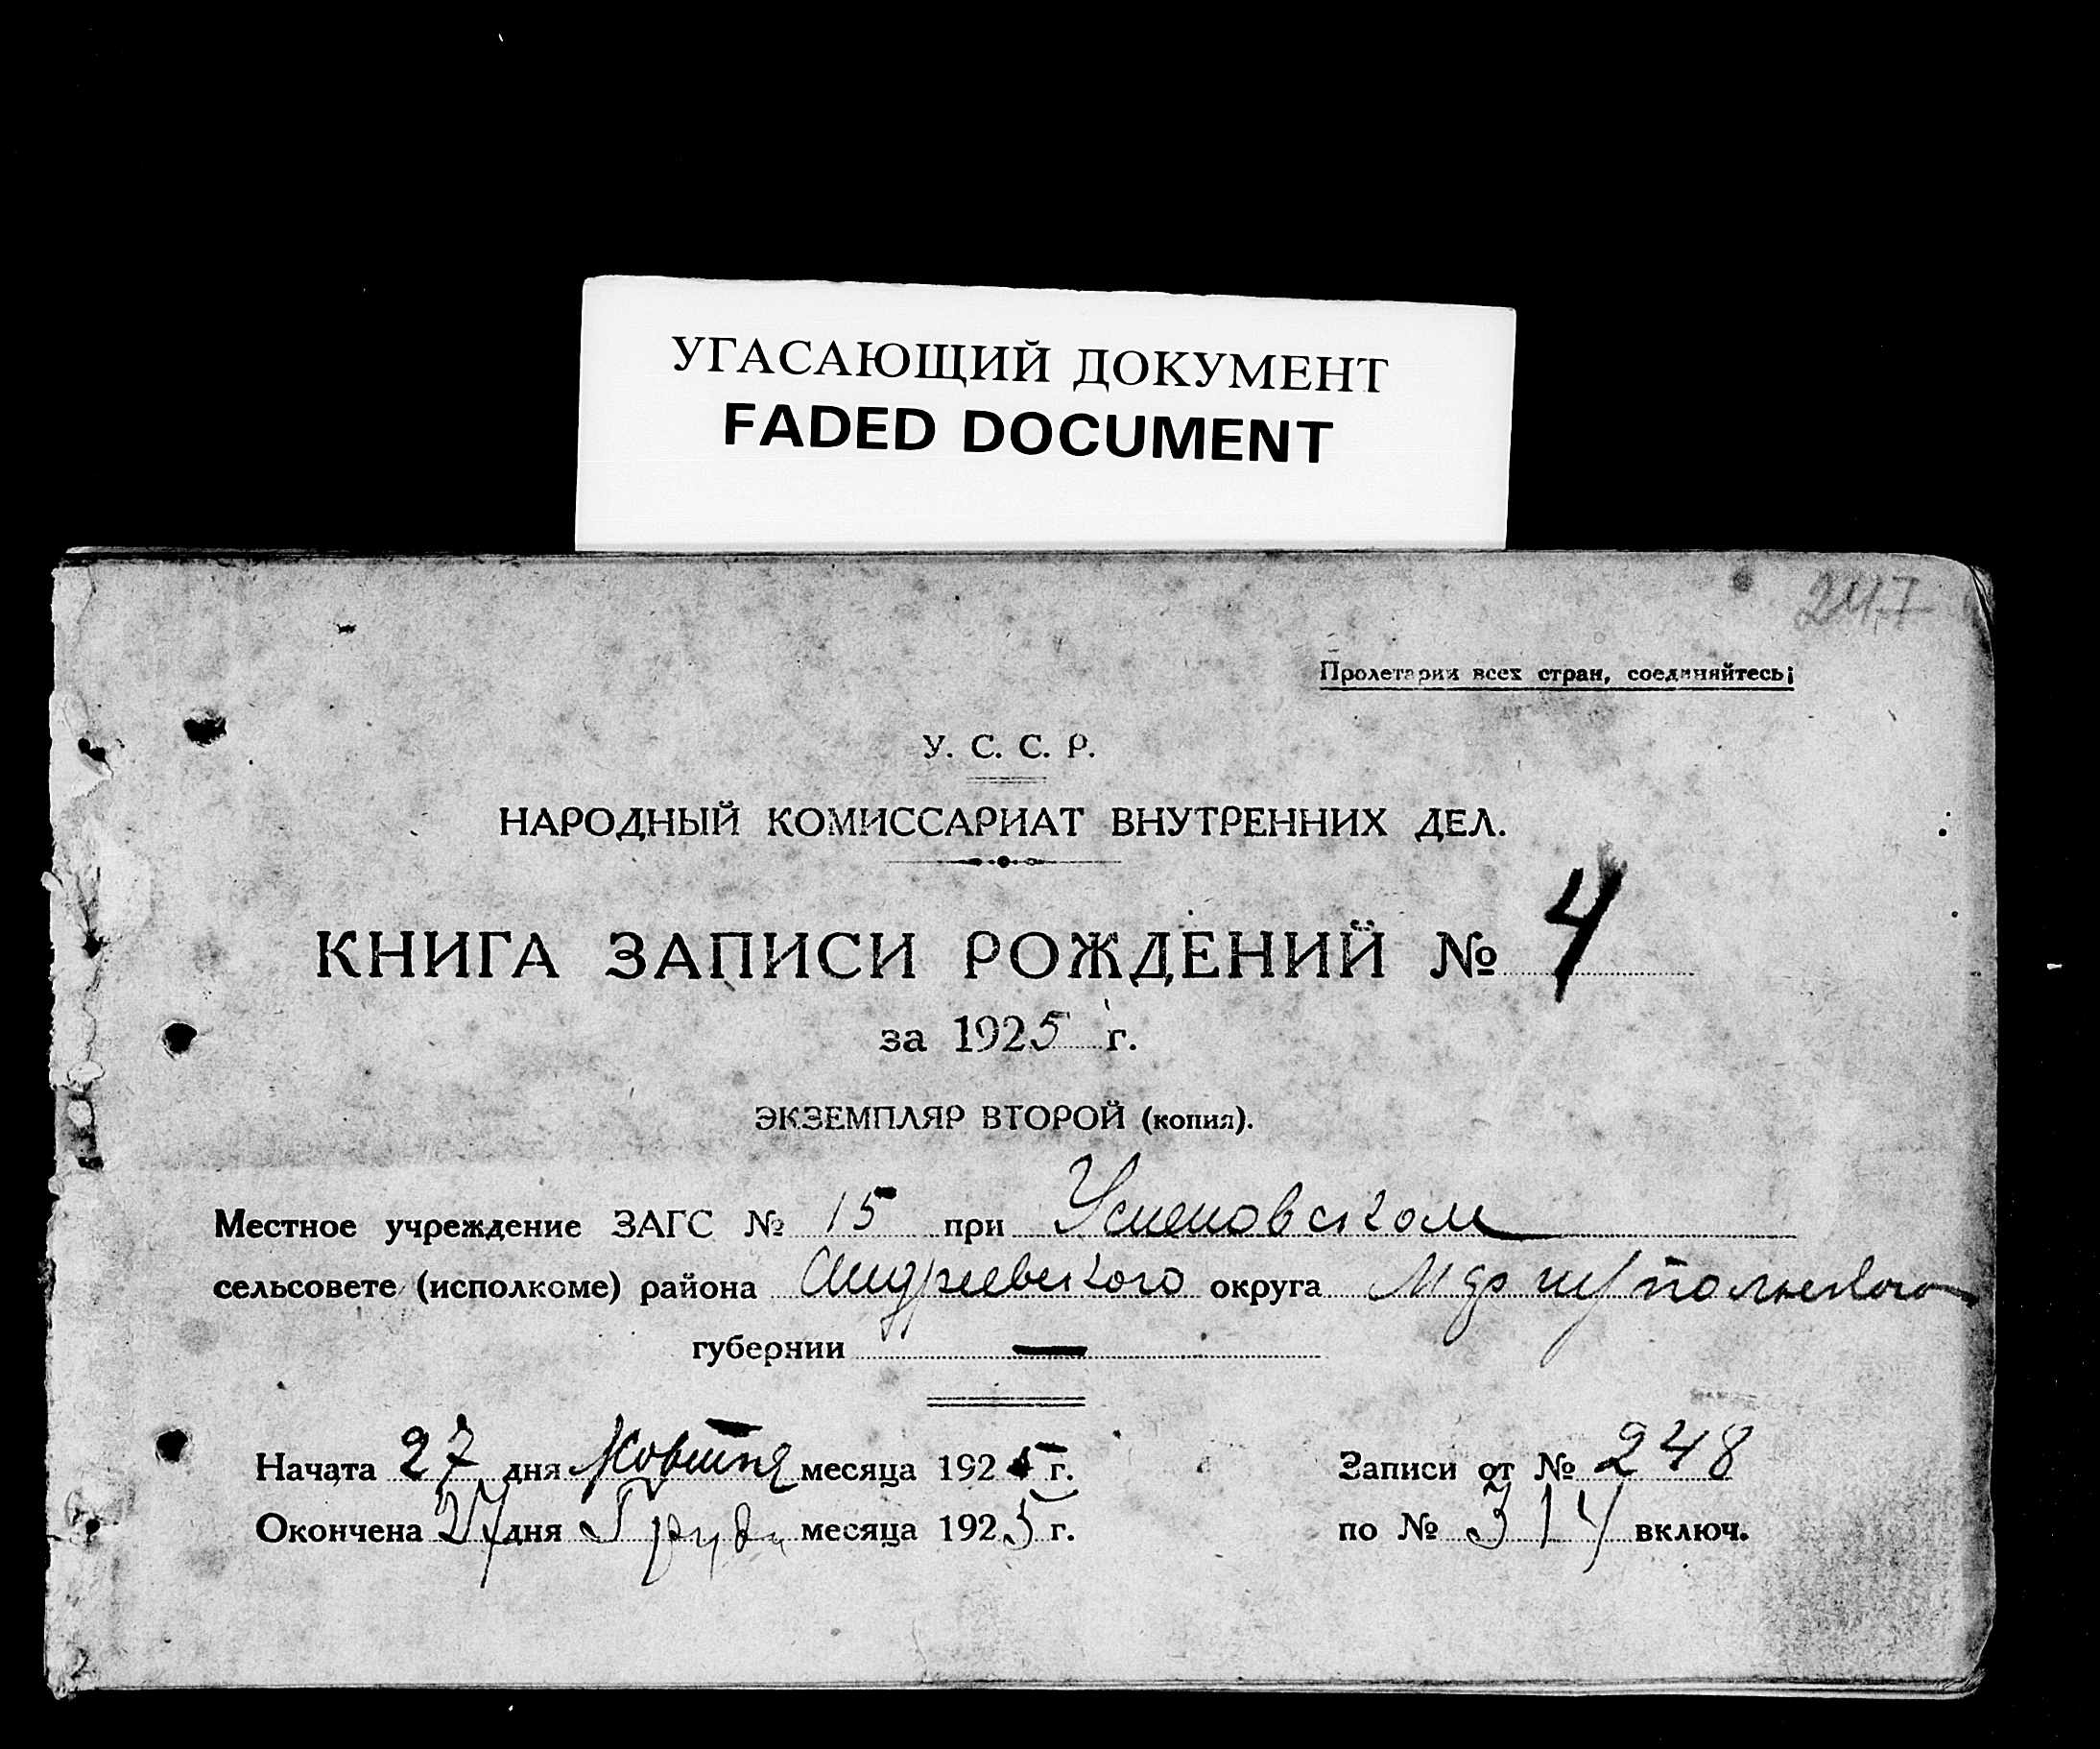 УГАСАЮЩИЙ ДОКУМЕНТ
FADED DOCUMENT
247
Пролетарии всех стран, соединяйтесь¡
У. С. С. Р.
НАРОДНЫЙ КОМИССАРИАТ ВНУТРЕННИХ ДЕЛ.
КНИГА ЗАПИСИ РОЖДЕНИЙ № 4
за 1925 г.
ЭКЗЕМПЛЯР ВТОРОЙ (копия).
Местное учреждение ЗАГС № 15 при Успеновском
сельсовете (исполкоме) района Андреевского округа Мариупольского
губернии —
Начата 27 дня Жовтня месяца 1925 г. Записи от № 248
Окончена 27 дня Грудн месяца 1925 г. по № 314 включ.